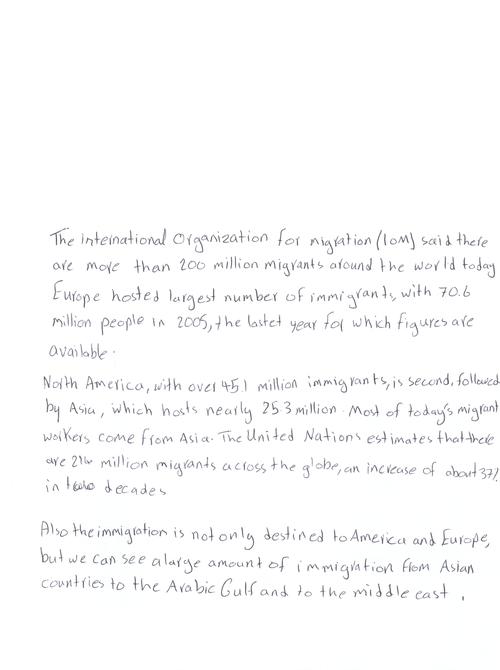 The international Organization for migration (IOM) said there
are more than 200 million migrants around the world today
Europe hosted largest number of immigrants, with 70.6
million people in 2005, the lastet year for which figures are
available.
North America, with over 45.1 million immigrants, is second, followed
by Asia, which hosts nearly 25.3 million. Most of today's migrant
workers come from Asia. The United Nations estimates that there
are million migrants across the globe, an increase of about 37%
in decades
Also the immigration is not only destined to America and Europe,
but we can see a large amount of immigration from Asian
countries to the Arabic Gulf and to the middle east.